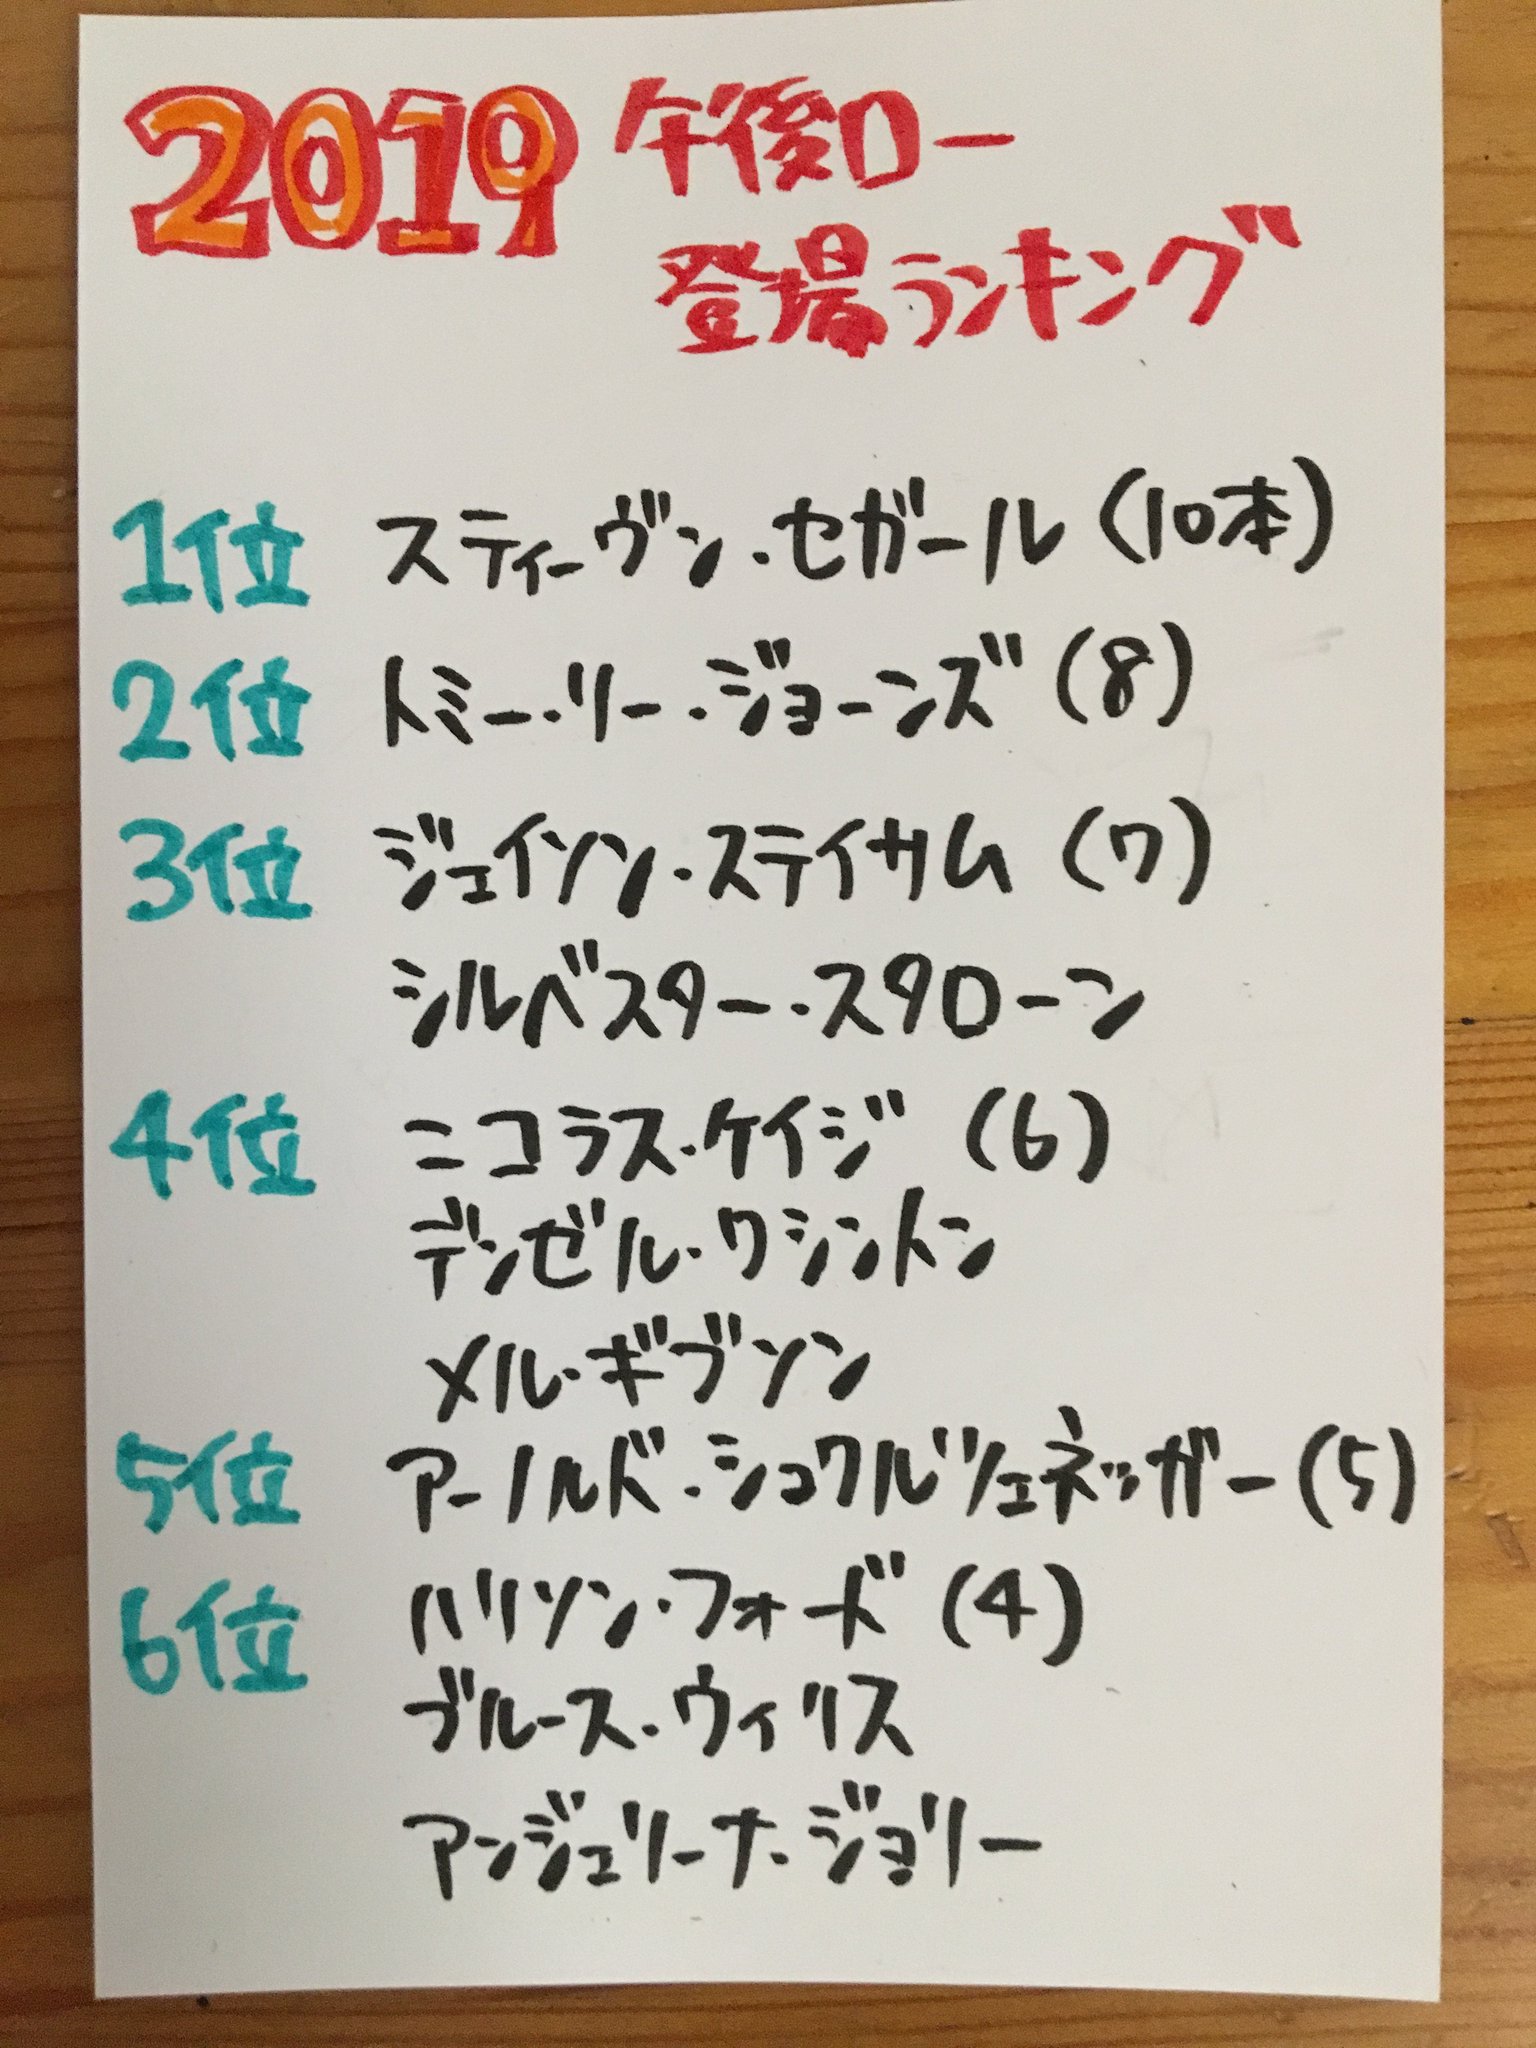 2019 午後ロー
登場ランキング
1位 スティーヴン・セガール (10本)
2位 トミー・リー・ジョーンズ (8)
3位 ジェイソン・ステイサム (7)
シルベスター・スタローン
4位 ニコラス・ケイジ (6)
デンゼル・ワシントン
メル・ギブソン
5位 アーノルド・シュワルツェネッガー (5)
6位 ハリソン・フォード (4)
ブルース・ウィリス
アンジェリーナ・ジョリー